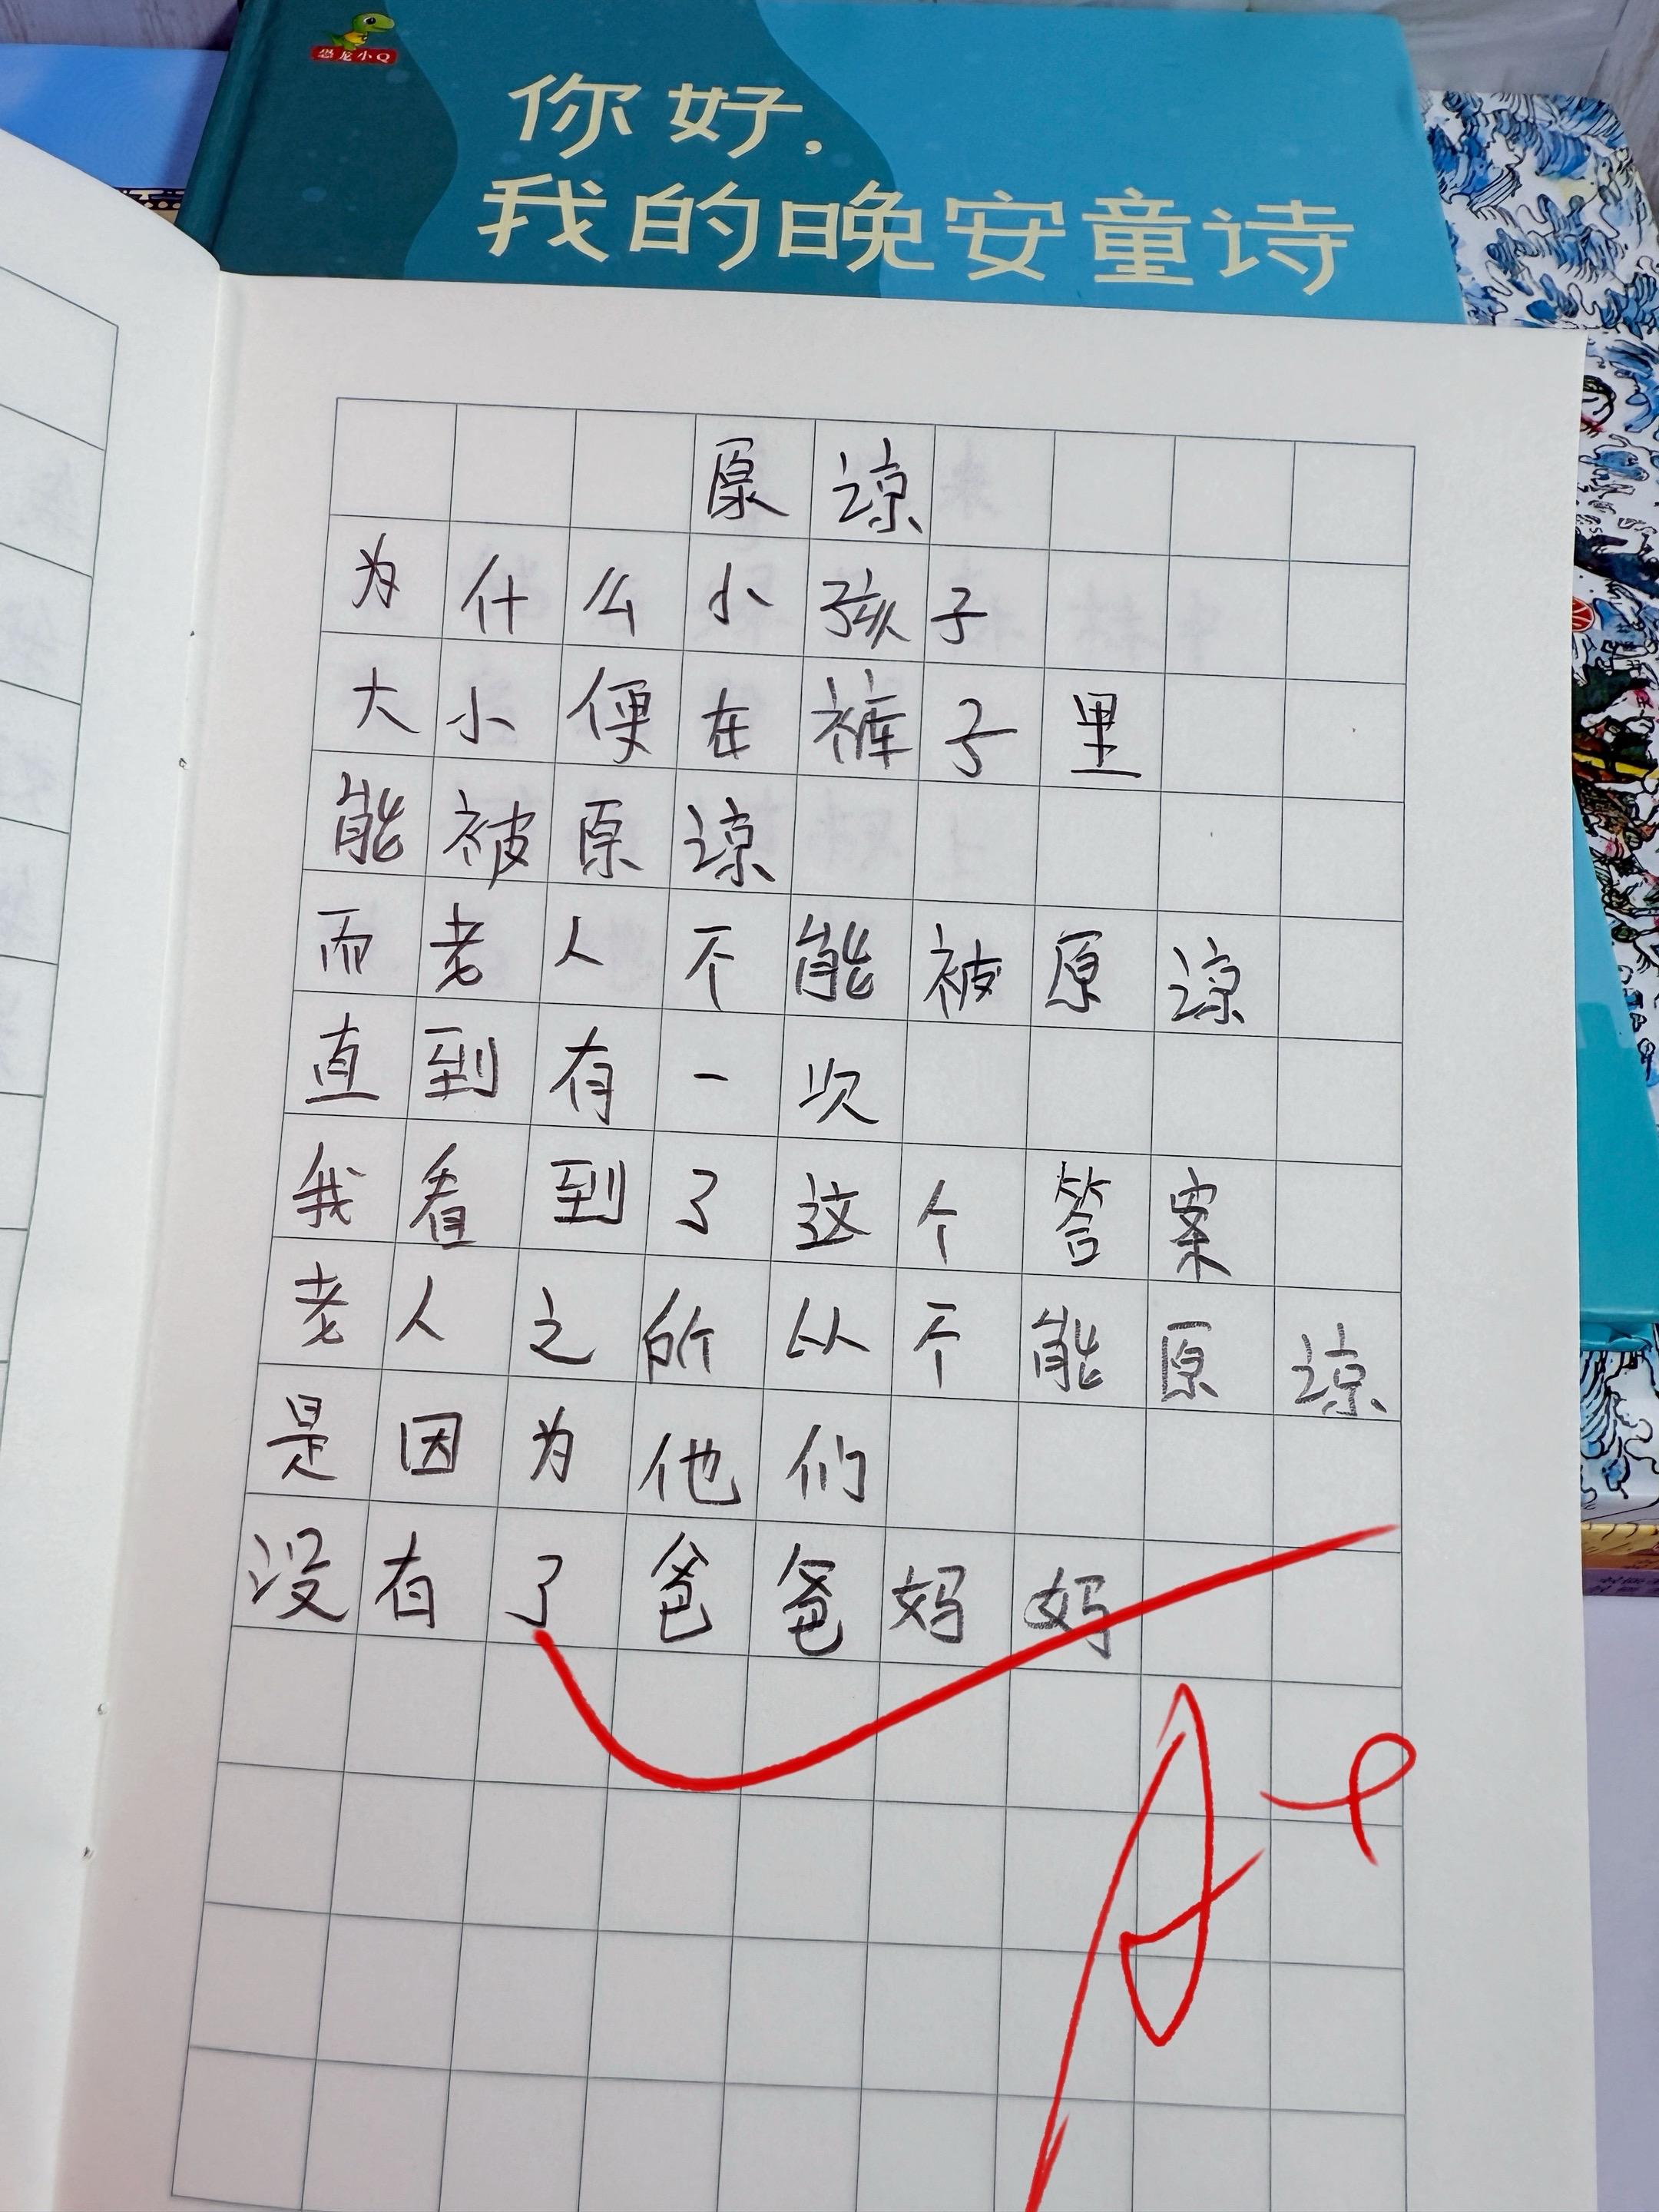 恐龙小Q
你好,
我的晚安童诗
原谅
为什么小孩子
大小便在裤子里
能被原谅
而老人不能被原谅
直到有一次
我看到了这个答案
老人之所以不能原谅
是因为他们
没有了爸爸妈妈
A+